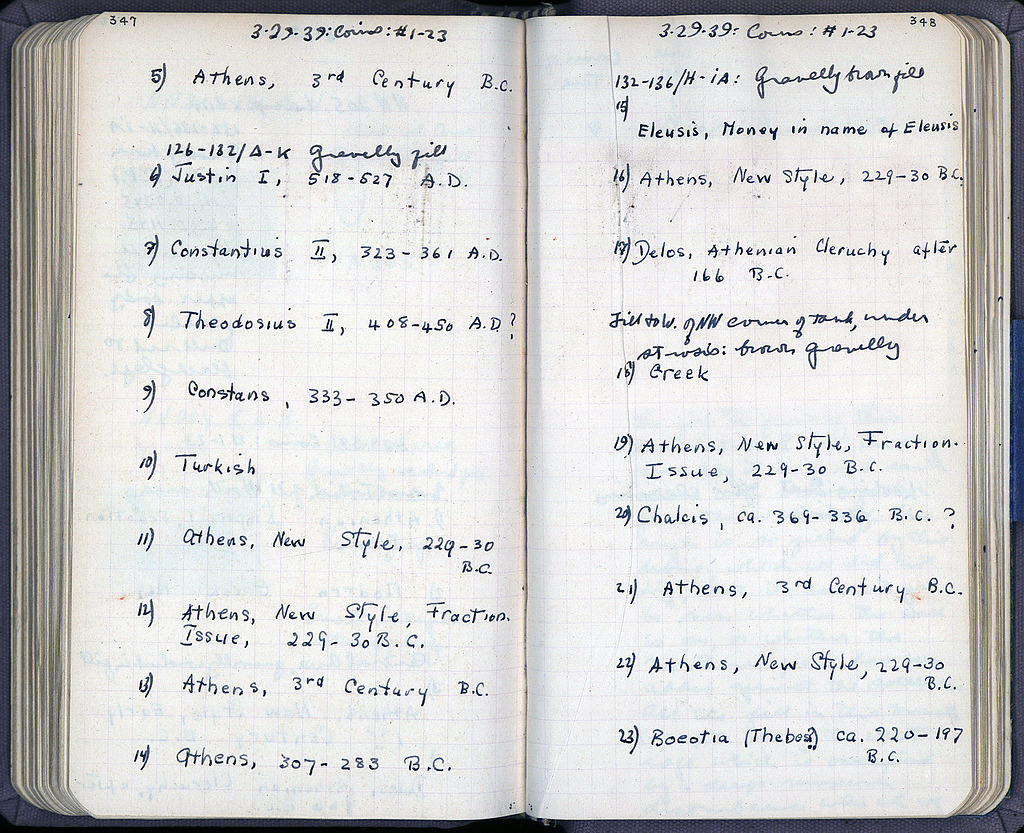 347
3-29-39: Coins: #1-23
5) Athens, 3rd Century B.C.
126-132/Δ-K Gravelly fill
6) Justin I, 518-527 A.D.
7) Constantius II, 323-361 A.D.
8) Theodosius II, 408-450 A.D.?
9) Constans, 333-350 A.D.
10) Turkish
11) Athens, New Style, 229-30
B.C.
12) Athens, New Style, Fraction.
Issue, 229-30 B.C.
13) Athens, 3rd Century B.C.
14) Athens, 307-283 B.C.
348
3-29-39: Coins: #1-23
132-136/H-IA: Gravelly brown fill
15)
Eleusis, Money in name of Eleusis
16) Athens, New Style, 229-30 B.C.
17) Delos, Athenian Cleruchy after
166 B.C.
Fill to W. of NW corner of tank, under
strosis: brown gravelly
18) Greek
19) Athens, New Style, Fraction.
Issue, 229-30 B.C.
20) Chalcis, ca. 369-336 B.C.?
21) Athens, 3rd Century B.C.
22) Athens, New Style, 229-30
B.C.
23) Boeotia (Thebes?) ca. 220-197
B.C.